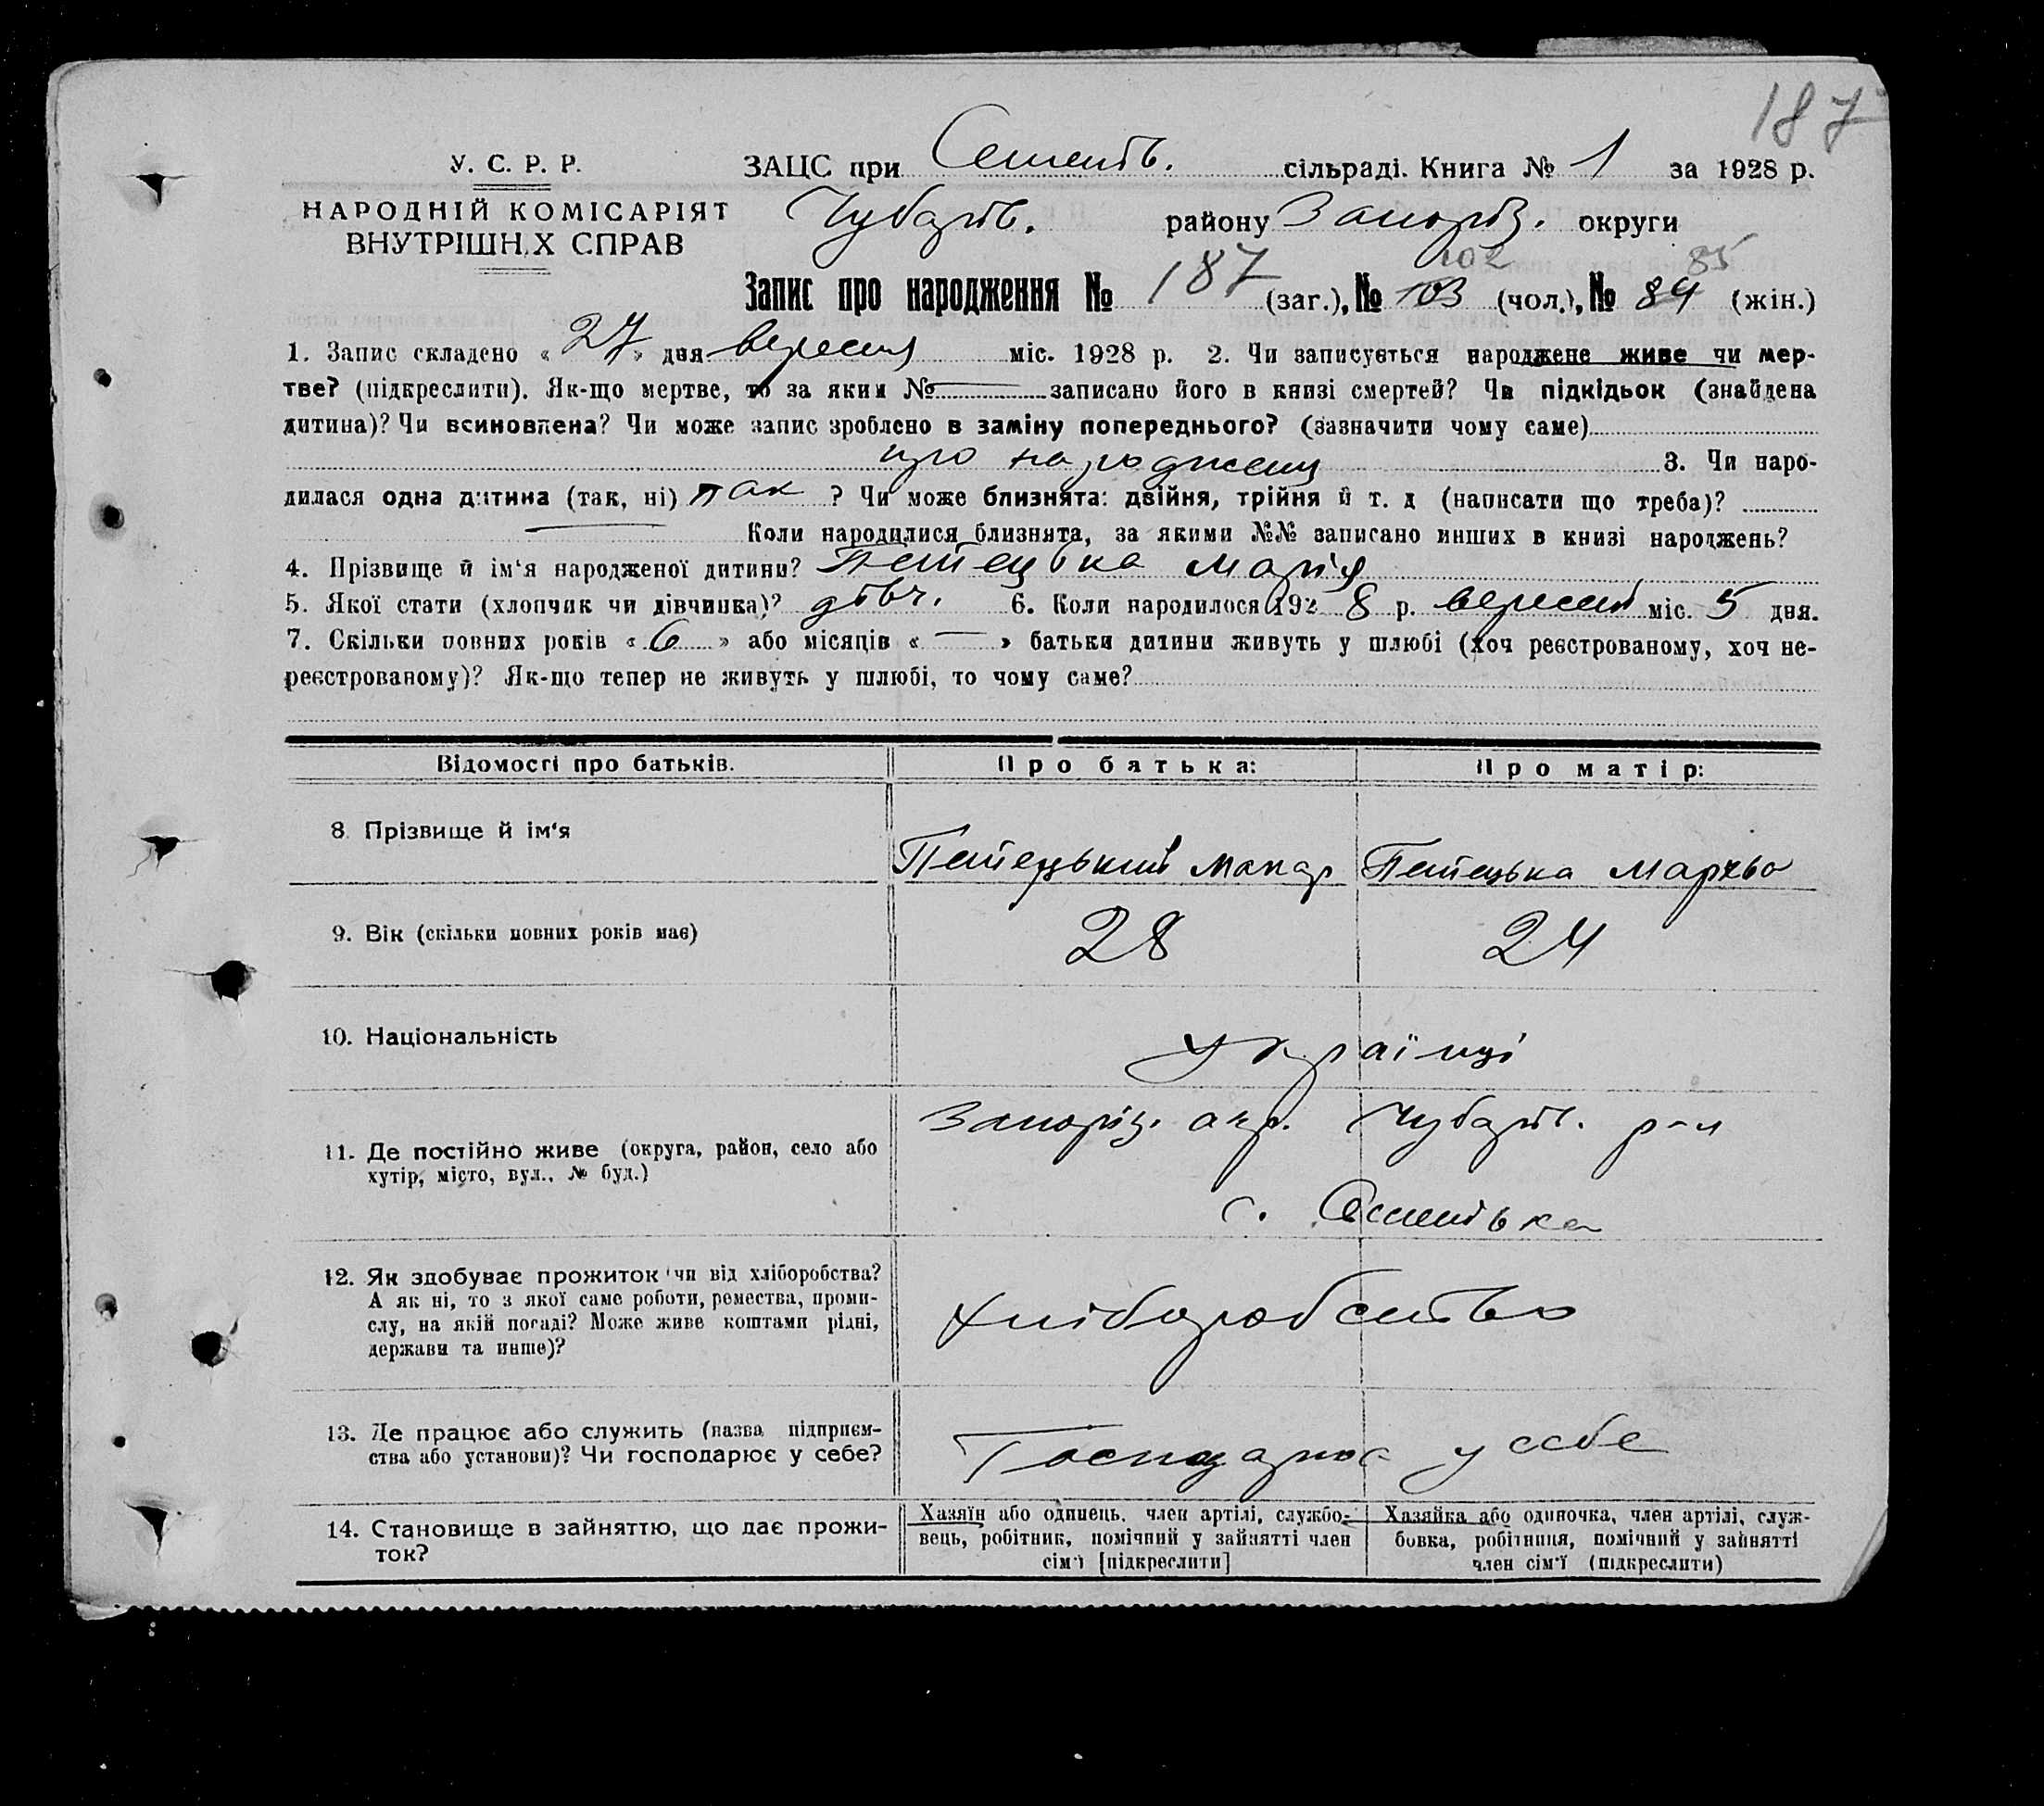 187
У. С. Р. Р.
НАРОДНІЙ КОМІСАРІЯТ
ВНУТРІШН.Х СПРАВ
ЗАЦС при сільраді. Книга № 1 за 1928 р.
Чубарів. району Запоріз. округи
102 85
Запис про народження № 187 (заг.), № 103 (чол.), № 84 (жін.)
1. Запис складено « 27 » дня вересня міс. 1928 р. 2. Чи записується народжене живе чи мер-
тве? (підкреслити). Як-що мертве, то за яким № записано його в книзі смертей? Чи підкідьок (знайдена
дитина)? Чи всиновлена? Чи може запис зроблено в заміну попереднього? (зазначити чому саме)
про народження 3. Чи наро-
дилася одна дитина (так, ні) так ? Чи може близнята: двійня, трійня й т. д (написати що треба)?
Коли народилися близнята, за якими №№ записано инших в книзі народжень?
4. Прізвище й ім‘я народженої дитини? Петецька Марія
5. Якої стати (хлопчик чи дівчинка)? дівч. 6. Коли народилося 192 8 р. вересня міс. 5 дня.
7. Скільки повних років « 6 » або місяців « — » батьки дитини живуть у шлюбі (хоч реєстрованому, хоч не-
реєстрованому)? Як-що тепер не живуть у шлюбі, то чому саме?
Відомості про батьків. Про батька: Про матір:
8. Прізвище й ім‘я Петецький Макар Петецька
9. Вік (скільки повних років має) 28 24
10. Національність українці
11. Де постійно живе (округа, район, село або
хутір, місто, вул., № буд.)
Запоріз. окр. Чубарів. р-н
с.
12. Як здобуває прожиток чи від хліборобства?
А як ні, то з якої саме роботи, ремества, проми-
слу, на якій посаді? Може живе коштами рідні,
держави та инше)?
Хліборобство
13. Де працює або служить (назва підприєм-
ства або установи)? Чи господарює у себе?
Господарює у себе
14. Становище в зайняттю, що дає прожи-
ток?
Хазяїн або одинець, член артілі, службо-
вець, робітник, помічний у зайнятті член
сім‘ї [підкреслити]
Хазяйка або одиночка, член артілі, служ-
бовка, робітниця, помічний у зайнятті
член сім‘ї (підкреслити)